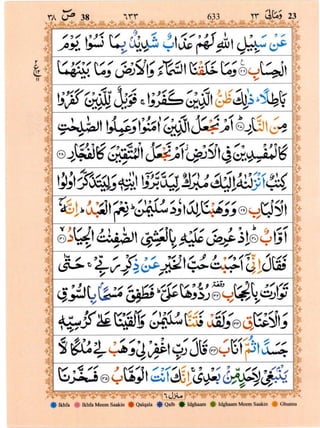 ص ٣٨ 38 ٦٣٣ 633 ٢٣ وَمَالِىَ 23
عَنْ سَبِيْلِ اللّٰهِ لَهُمْ عَذَابٌ شَدِيْدٌۢ بِمَا نَسُوْا يَوْمَ
الْحِسَابِ ﴿۲۶﴾ وَمَا خَلَقْنَا السَّمَآءَ وَالْاَرْضَ وَمَا بَيْنَهُمَا
بَاطِلًا ؕ ذٰلِكَ ظَنُّ الَّذِيْنَ كَفَرُوْا ۚ فَوَيْلٌ لِّلَّذِيْنَ كَفَرُوْا
مِنَ النَّارِ ﴿۲۷﴾ اَمْ نَجْعَلُ الَّذِيْنَ اٰمَنُوْا وَعَمِلُوا الصّٰلِحٰتِ
كَالْمُفْسِدِيْنَ فِى الْاَرْضِ ۫ اَمْ نَجْعَلُ الْمُتَّقِيْنَ كَالْفُجَّارِ ﴿۲۸﴾
كِتٰبٌ اَنْزَلْنٰهُ اِلَيْكَ مُبٰرَكٌ لِّيَدَّبَّرُوْۤا اٰيٰتِهٖ وَلِيَتَذَكَّرَ اُولُوا
الْاَلْبَابِ ﴿۲۹﴾ وَوَهَبْنَا لِدَاوٗدَ سُلَيْمٰنَ ؕ نِعْمَ الْعَبْدُ ؕ اِنَّهٗۤ
اَوَّابٌ ﴿۳۰﴾ اِذْ عُرِضَ عَلَيْهِ بِالْعَشِىِّ الصّٰفِنٰتُ الْجِيَادُ ﴿۳۱﴾
فَقَالَ اِنِّىْۤ اَحْبَبْتُ حُبَّ الْخَيْرِ عَنْ ذِكْرِ رَبِّىْ ۚ حَتّٰى
تَوَارَتْ بِالْحِجَابِ ﴿۳۲﴾ رُدُّوْهَا عَلَىَّ ؕ فَطَفِقَ مَسْحًۢا بِالسُّوْقِ
وَالْاَعْنَاقِ ﴿۳۳﴾ وَلَقَدْ فَتَنَّا سُلَيْمٰنَ وَاَلْقَيْنَا عَلٰى كُرْسِيِّهٖ
جَسَدًا ثُمَّ اَنَابَ ﴿۳۴﴾ قَالَ رَبِّ اغْفِرْ لِىْ وَهَبْ لِىْ مُلْكًا لَّا
يَنْۢبَغِىْ لِاَحَدٍ مِّنْۢ بَعْدِىْ ۚ اِنَّكَ اَنْتَ الْوَهَّابُ ﴿۳۵﴾ فَسَخَّرْنَا
منزل ٦
Ikhfa Ikhfa Meem Saakin Qalqala Qalb Idghaam Idghaam Meem Saakin Ghunna